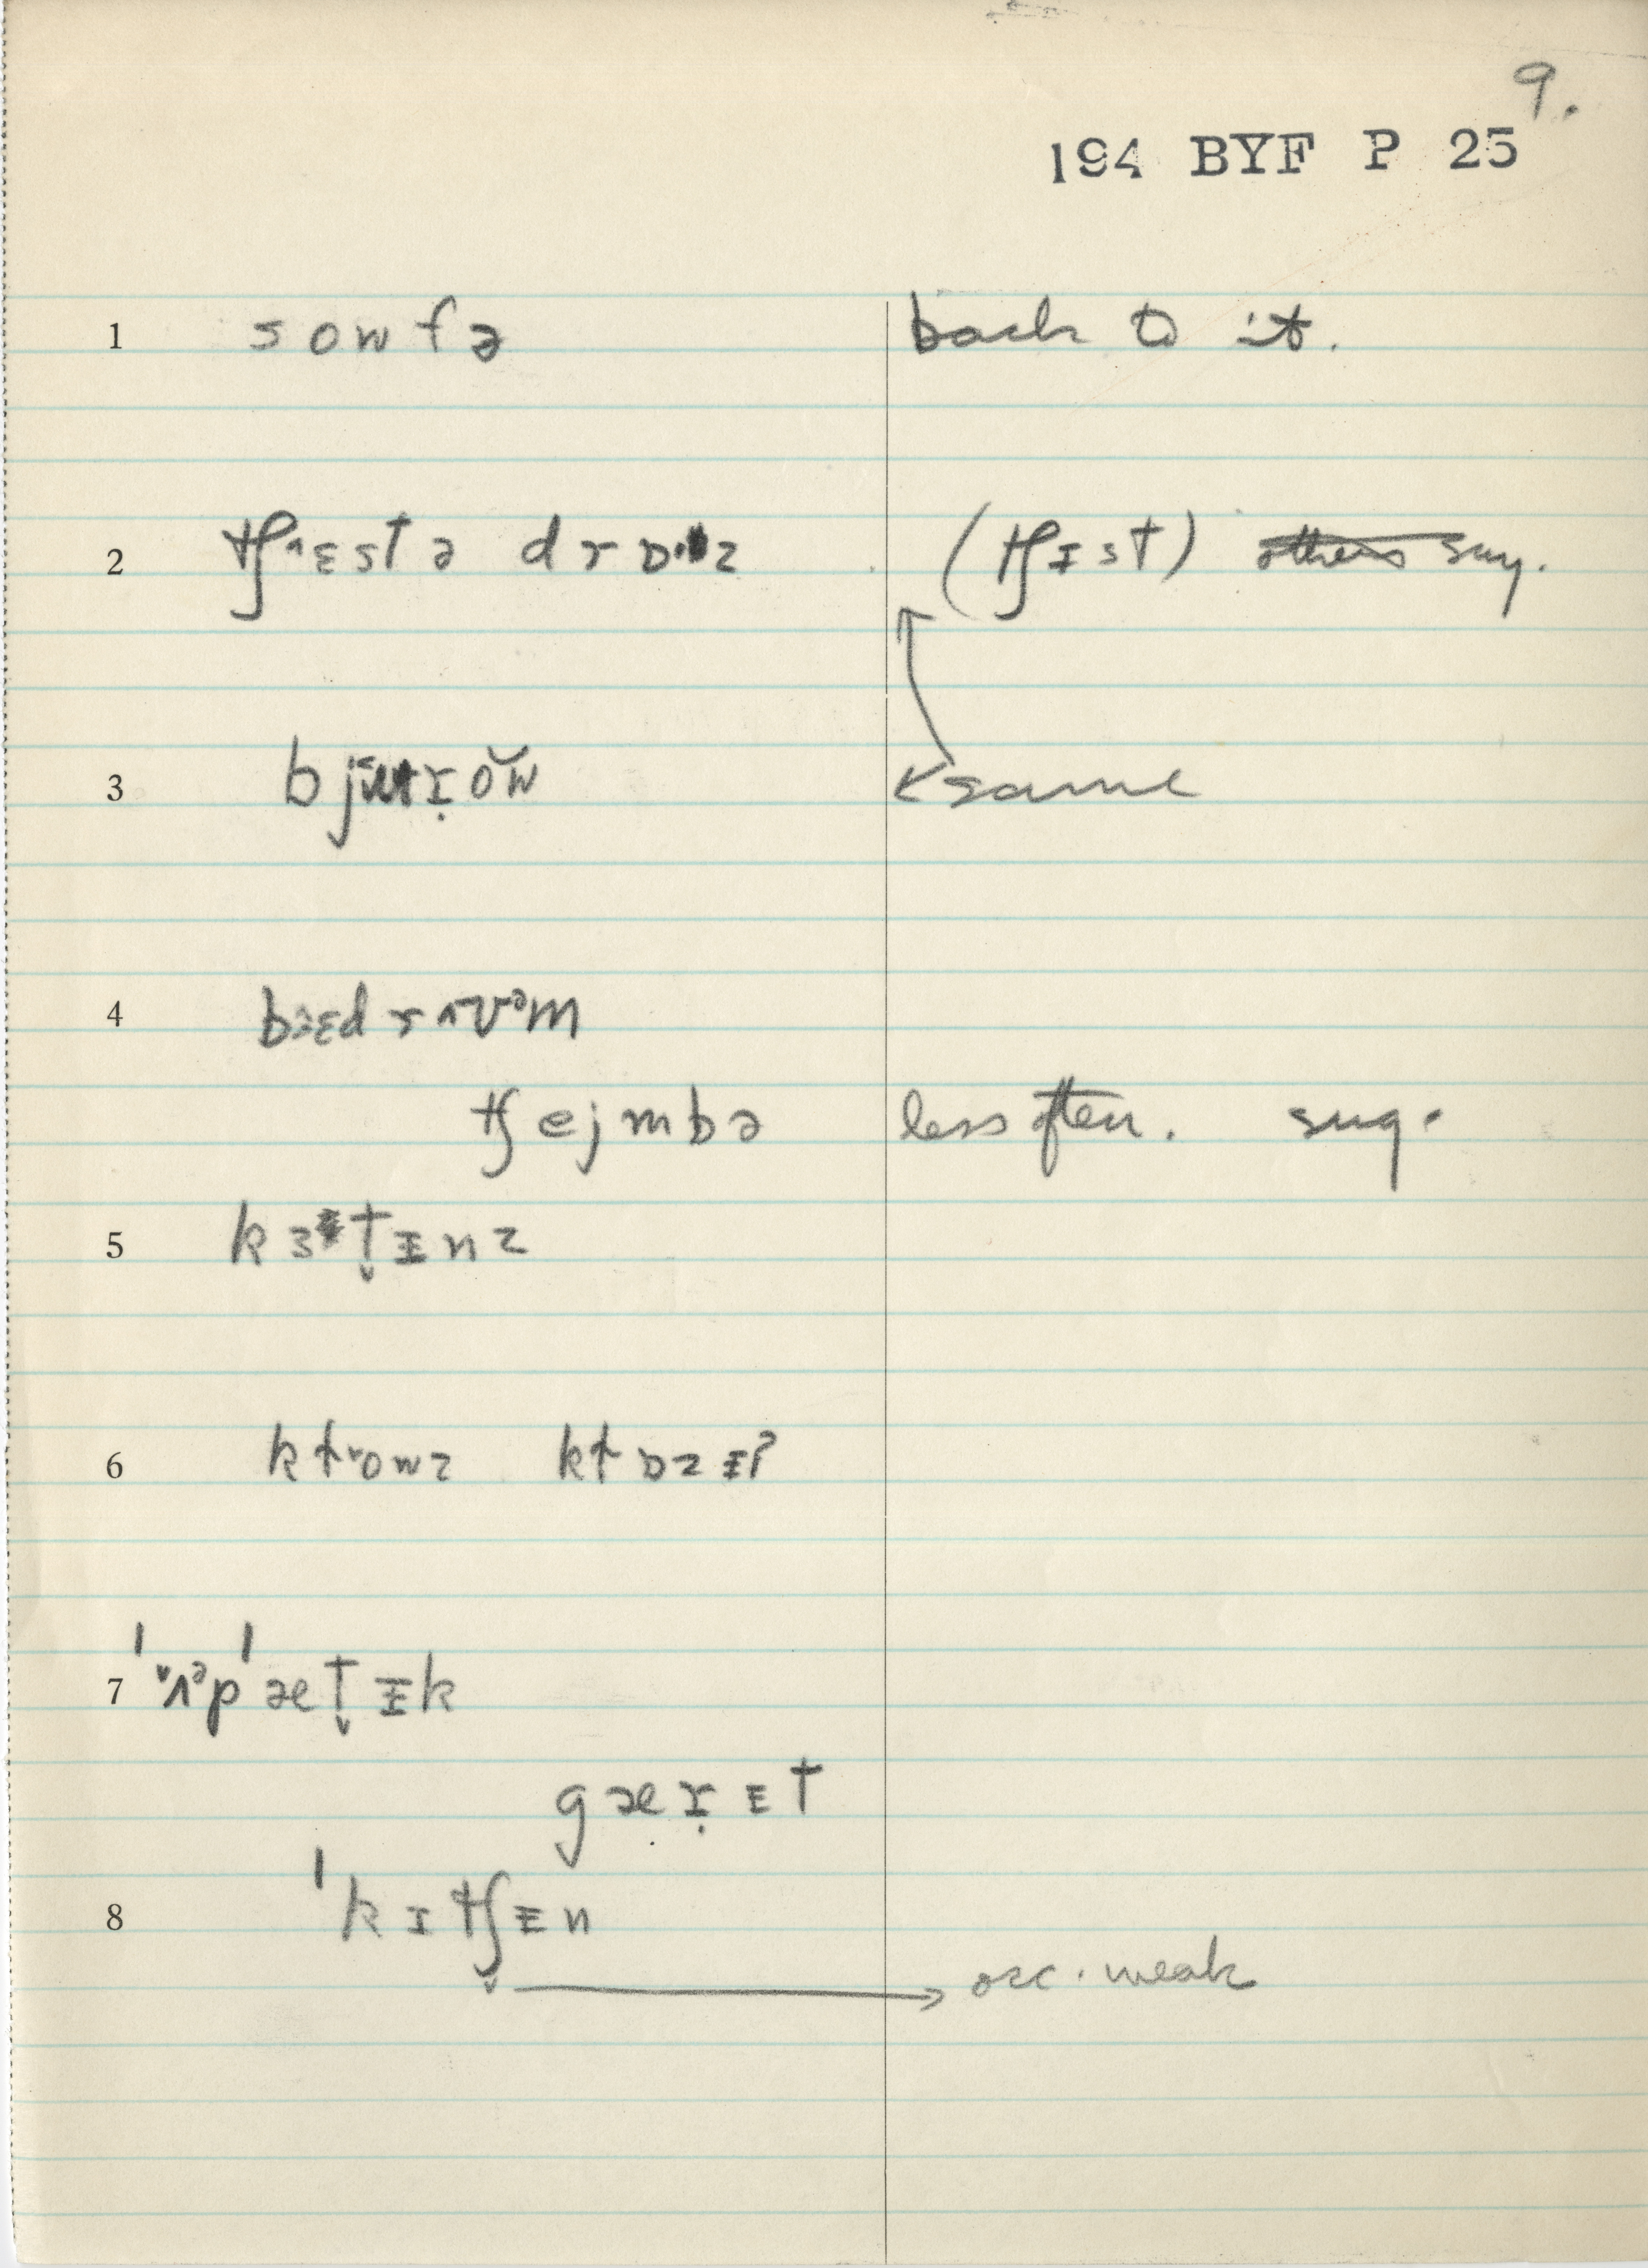 9.
194 BYF P 25
1 sowfə back to it.
2 tʃ˄ɛstə drɒ·z (tʃɪst) others say.
3 bjɪ̣ŏw same
4 bɜɛdr˄ʊᵊm
tʃejmbə less often. sug.
5 kɜt̬ɪnz
6 kɫ˅owz kɫɒzɪʔ
7 ˈ˅ʌᵊpˈæt̬ɪk
gæɪ̣ɪt
8 ˈkɪtʃ̬ɪn
→ occ. weak